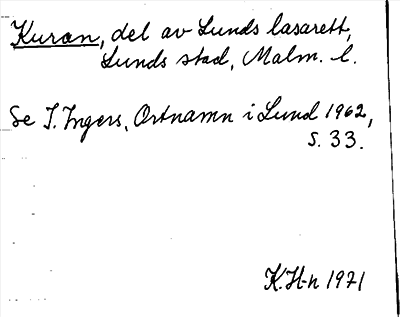 Kuran, del av Lunds lasarett,
Lunds stad, Malm. l.
Se I. Ingers, Ortnamn i Lund 1962,
s. 33.
K. H-n 1971